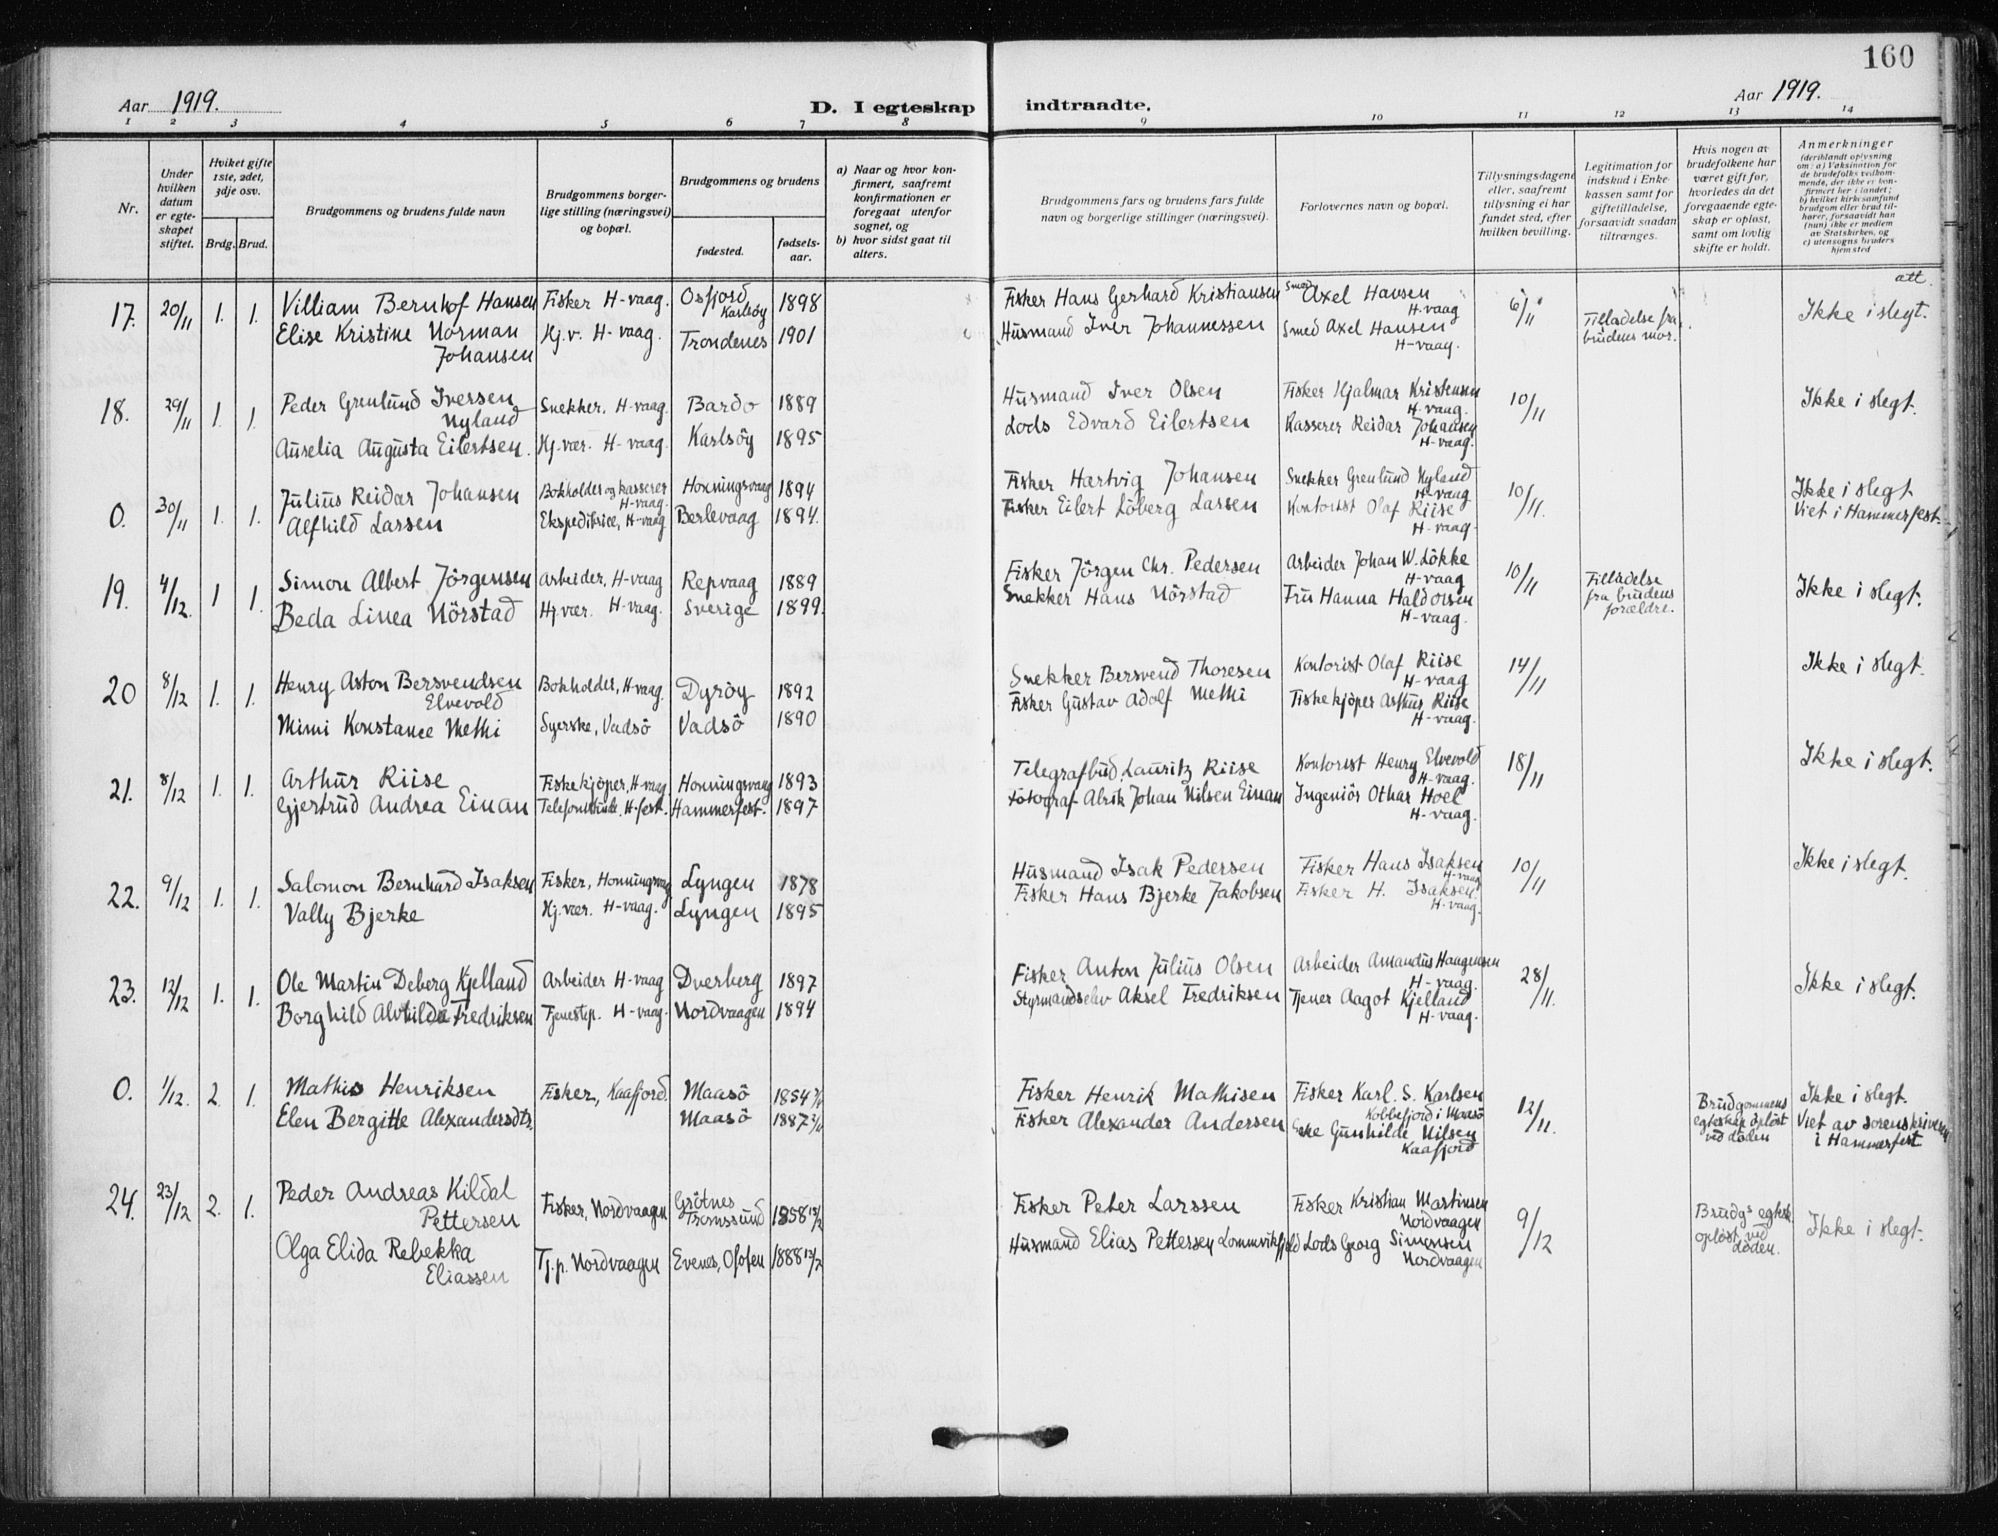 160
Aar 1919. D. I egteskap indtraadte. Aar 1919.
1 2 3 4 5 6 7 8 9 10 11 12 13 14
Nr.
Under hvilken datum er egteskapet stiftet.
Hviket gifte 1ste, 2det, 3dje osv.
Brdg. Brud.
Brudgommens og brudens fulde navn
Brudgommens borgerlige stilling (næringsvei) og bopæl.
Brudgommens og brudens
fødested. fødselsaar.
a) Naar og hvor konfirmert, saafremt konfirmationen er foregaat utenfor sognet, og
b) hvor sidst gaat til alters.
Brudgommens fars og brudens fars fulde navn og borgerlige stillinger (næringsvei).
Forlovernes navn og bopæl.
Tillysningsdagene eller, saafremt tillysning ei har fundet sted, efter hvilken bevilling.
Legitimation for indskud i Enkekassen samt for giftetilladelse, forsaavidt saadan tiltrænges.
Hvis nogen av brudefolkene har været gift før, hvorledes da det foregaaende egteskap er opløst, samt om lovlig skifte er holdt.
Anmerkninger
(deriblandt oplysning om: a) Vaksination for de brudefolks vedkommende, der ikke er konfirmert her i landet; b) hvilket kirkesamfund brudgom eller brud tilhører, forsaavidt han (hun) ikke er medlem av Statskirken, og c) utensogns bruders hjemsted
att.
17. 20/11 1. 1. Villiam Bernhof Hansen Fisker H-vaag. Osfjord Karlsöy 1898 Fisker Hans Gerhard Kristiansen Smed Axel Hansen H-vaag 6/11 Tilladelse fra brudens mor. Ikke i slegt.
Elise Kristine Norman Johansen Hj.v. H-vaag. Trondenes 1901 Husmand Iver Johannessen Smed Axel Hansen H-vaag.
18. 29/11 1. 1. Peder Grenlund Iversen Nyland Snekker, H-vaag. Bardo 1889 Husmand Iver Olsen Fisker Hjalmar Kristensen H-vaag. 10/11 Ikke i slegt.
Aurelia Augusta Eilertsen. Hj.vær. H-vaag. Karlsöy 1895 Lods Edvard Eilertsen Kasserer Reidar Johansen H-vaag.
0. 30/11 1. 1. Julius Reidar Johansen Bokholder og kasserer H-vaag. Honningsvaag 1894 Fisker Hartvig Johansen Snekker Grenlund Nyland H-vaag 10/11. Ikke i slegt
Alfhild Larsen Ekspeditrice, H-vaag Berlevaag 1894. Fisker Eilert Löberg Larssen Kontorist Olaf Riise H-vaag. Viet i Hammerfest.
19. 4/12. 1 1. Simon Albert Jörgensen Arbeider, H-vaag Repvaag 1889 Fisker Jörgen Chr. Pedersen Arbeider Johan W. Lökke H-vaag 10/11 Tilladelse fra brudens forældre. Ikke i slegt.
Beda Linea Nörstad Hj.vær. H-vaag. Sverige 1899. Snekker Hans Nörstad Fru Hanna Haldorsen H-vaag.
20 8/12 1. 1. Henry Aston Bersvendsen Elvevold Bokholder, H-vaag. Dyröy 1892 Snekker Bersvend Thoresen Kontorist Olaf Riise H-vaag 14/11 Ikke i slegt.
Mimi Konstance Methi Syerske, Vadsö Vadsö 1890 Fisker Gustav Adolf Methi Fiskekjöper Arthur Riise H-vaag.
21. 8/12 1. 1. Arthur Riise Fiskekjöper, H-vaag. Honningsvaag 1893 Telegrafbud, Lauritz Riise Kontorist Henry Elvevold H-vaag. 18/11 Ikke i slegt.
Gjertrud Andrea Einan H-fest. Hammerfest. 1897 Fotograf Alrik Johan Nilsen Einan Ingeniör Othar Hoel H-vaag.
22. 9/12 1. 1. Salomon Bernhard Isaksen Fisker, Honningsvag Lyngen 1878 Husmand Isak Pedersen Fisker Hans Isaksen H-vaag 10/11 Ikke i slegt.
Vally Bjerke Hj.vær. H-vaag. Lyngen 1895 Fisker Hans Bjerke Jakobsen Fisker H. Isaksen. H-vaag.
23. 12/12 1. 1. Ole Martin Deberg Kjelland Arbeider H-vaag Dverberg 1897 Fisker Anton Julius Olsen Arbeider Amandus Haugensen H-vaag. 28/11. Ikke i slegt.
Borghild Alvhilda Fredriksen Tjenestep. H-vaag. Nordvaagen 1894 Styrmandselev Aksel Fredriksen Tjener Aagot Kjelland H-vaag.
0. 1/12. 2. 1. Mathis Henriksen Fisker, Kaafjord. Maasö 1854 Fisker Henrik Mathisen Fisker Karl. S. Karlsen Kobbefjord i Maasö 12/11. Brudgommens egteskap opløst ved døden Ikke i slegt.
Elen Bergitte Alexandersdtr. Maasö 1887 Fisker Alexander Andersen Enke Gunhilde Nilsen Kaafjord Viet av sorenskriveren i Hammerfest
24. 23/12 2. 1. Peder Andreas Kildal Pettersen Fisker, Nordvaagen Grötnes Tromssund 1858 13/2 Fisker Peter Larssen Fisker Kristian Martinsen Nordvaagen 9/12 Brudgs egtesk. opløst ved døden. Ikke i slegt.
Olga Elida Rebekka Eliassen Tj.p. Nordvaagen Evenes, Ofoten 1888 13/2 Husmand Elias Pettersen Lommvikfjeld Lods Georg Simonsen Nordvaagen